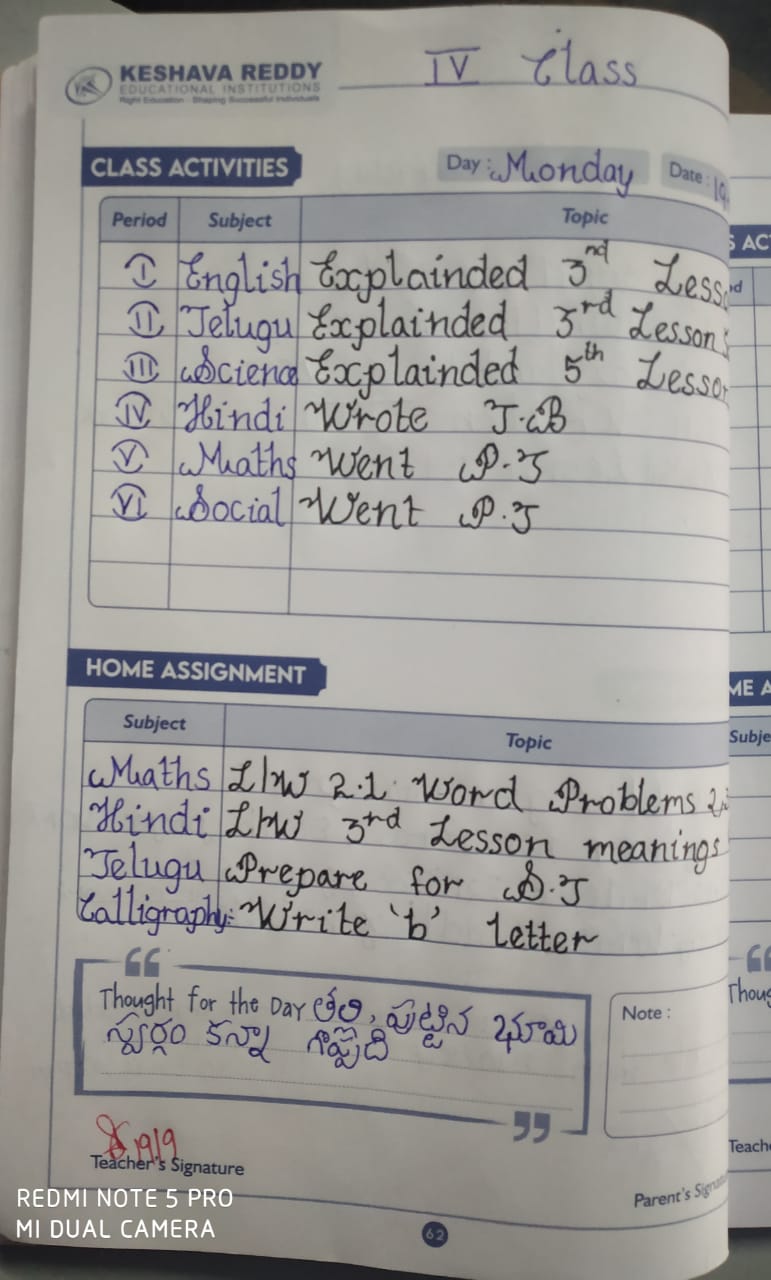 KESHAVA REDDY
EDUCATIONAL INSTITUTIONS
Right Education - Shaping Successful Individuals
IV Class
CLASS ACTIVITIES
Day : Monday Date : 19
Period Subject Topic
I English Explainded 3nd Lesso
II Telugu Explainded 3rd Lesson
III Science Explainded 5th Lesson
IV Hindi Wrote T.B
V Maths Went P.T
VI Social Went P.T
HOME ASSIGNMENT
Subject Topic
Maths L/W 2.1. Word Problems 2.
Hindi L/W 3rd Lesson meanings
Telugu Prepare for S.T
Calligraphy:- Write 'b' letter
Thought for the Day తల్లి, పుట్టిన భూమి
స్వర్గం కన్నా గొప్పది
Note :
19/9
Teacher's Signature
Parent's Signatu
REDMI NOTE 5 PRO
MI DUAL CAMERA
62
S AC
ME A
Subje
Thoug
Teache